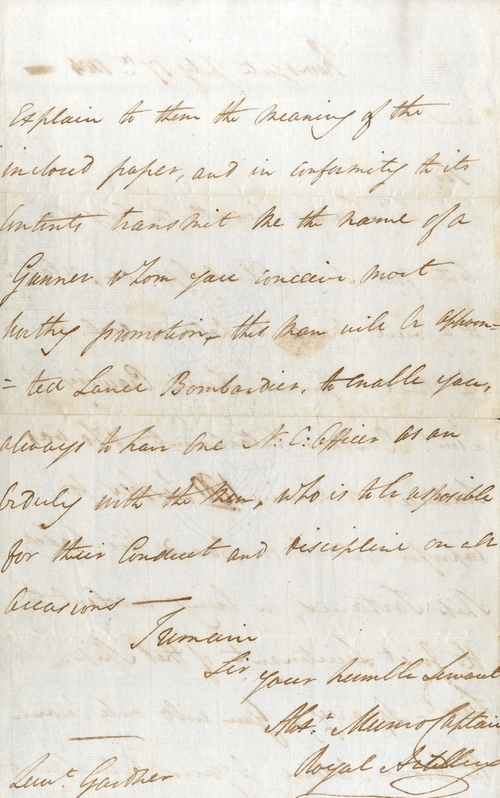 Explain to them the meaning of the
inclosed paper, and in conformity to its
Contents transmit me the name of a
Gunner whom you conceive most
worthy promotion, this Man will be appoin=
=ted Lance Bombardier, to enable you,
always to have one N.C. Officer as an
Orderly with the Men, who is to be
for their Conduct and discipline on all
Occasions —
I remain
Sir,
your humble Servant
Munro Captain
Royal Artillery
Lieut. Gardner